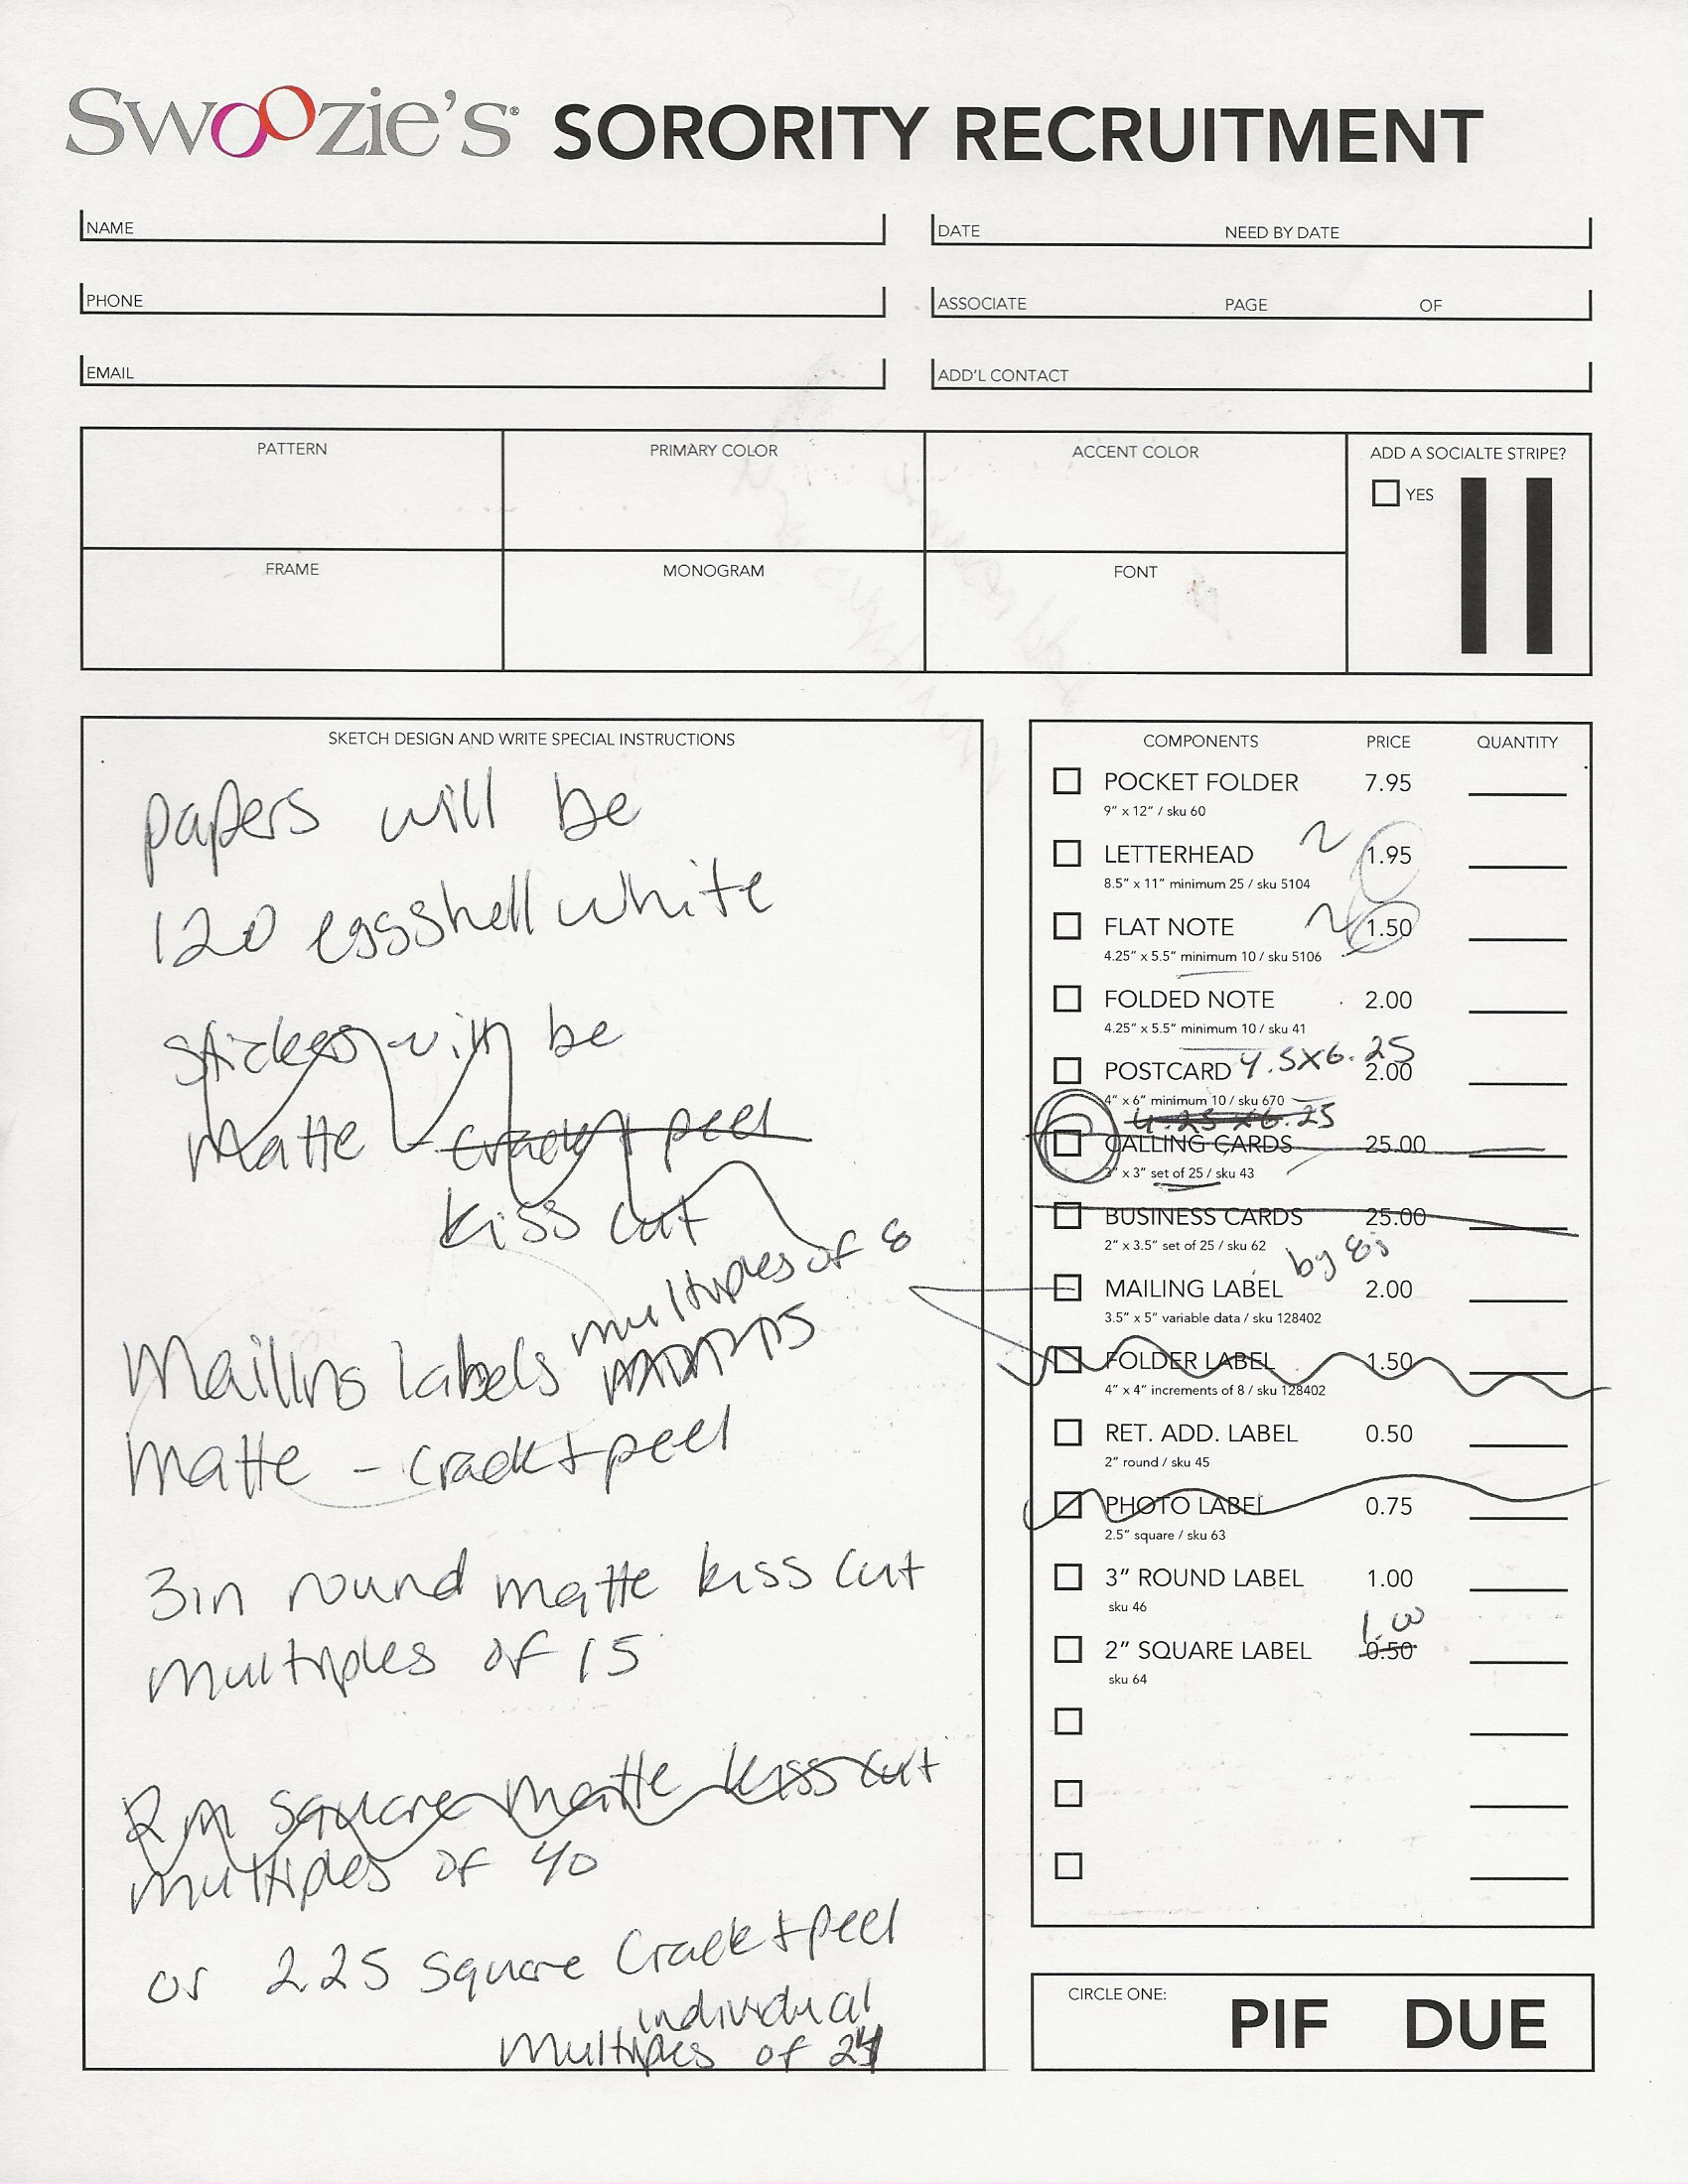 Swoozie's® SORORITY RECRUITMENT
NAME
DATE NEED BY DATE
PHONE
ASSOCIATE PAGE OF
EMAIL
ADD'L CONTACT
PATTERN
PRIMARY COLOR
ACCENT COLOR
ADD A SOCIALTE STRIPE?
YES
FRAME
MONOGRAM
FONT
SKETCH DESIGN AND WRITE SPECIAL INSTRUCTIONS
papers will be
120 eggshell white
stickers will be
Matte - Crack + peel
kiss cut
multiples of 8
Mailing labels
Matte - Crack + peel
3in round matte kiss cut
multiples of 15
2in square matte kiss cut
multiples of 40
or 2.25 square Crack + peel
individual
multiples of 24
COMPONENTS PRICE QUANTITY
POCKET FOLDER 7.95
9" x 12" / sku 60
LETTERHEAD 1.95
8.5" x 11" minimum 25 / sku 5104
FLAT NOTE 1.50
4.25" x 5.5" minimum 10 / sku 5106
FOLDED NOTE 2.00
4.25" x 5.5" minimum 10 / sku 41
POSTCARD 4.5x6.25 2.00
4" x 6" minimum 10 / sku 670
4.25 x 6.25
CALLING CARDS 25.00
3" x 3" set of 25 / sku 43
BUSINESS CARDS 25.00
2" x 3.5" set of 25 / sku 62
by 8s
MAILING LABEL 2.00
3.5" x 5" variable data / sku 128402
FOLDER LABEL 1.50
4" x 4" increments of 8 / sku 128402
RET. ADD. LABEL 0.50
2" round / sku 45
PHOTO LABEL 0.75
2.5" square / sku 63
3" ROUND LABEL 1.00
sku 46
1.00
2" SQUARE LABEL 0.50
sku 64
CIRCLE ONE: PIF DUE